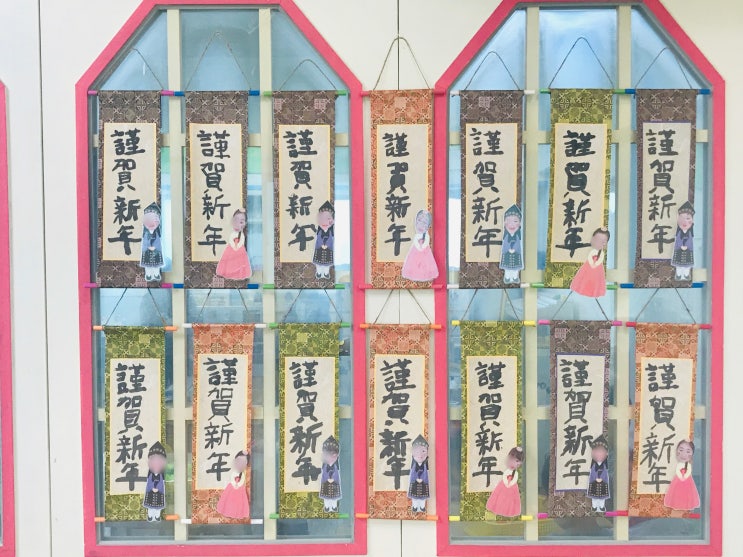 謹賀新年
謹賀新年
謹賀新年
謹賀新年
謹賀新年
謹賀新年
謹賀新年
謹賀新年
謹賀新年
謹賀新年
謹賀新年
謹賀新年
謹賀新年
謹賀新年